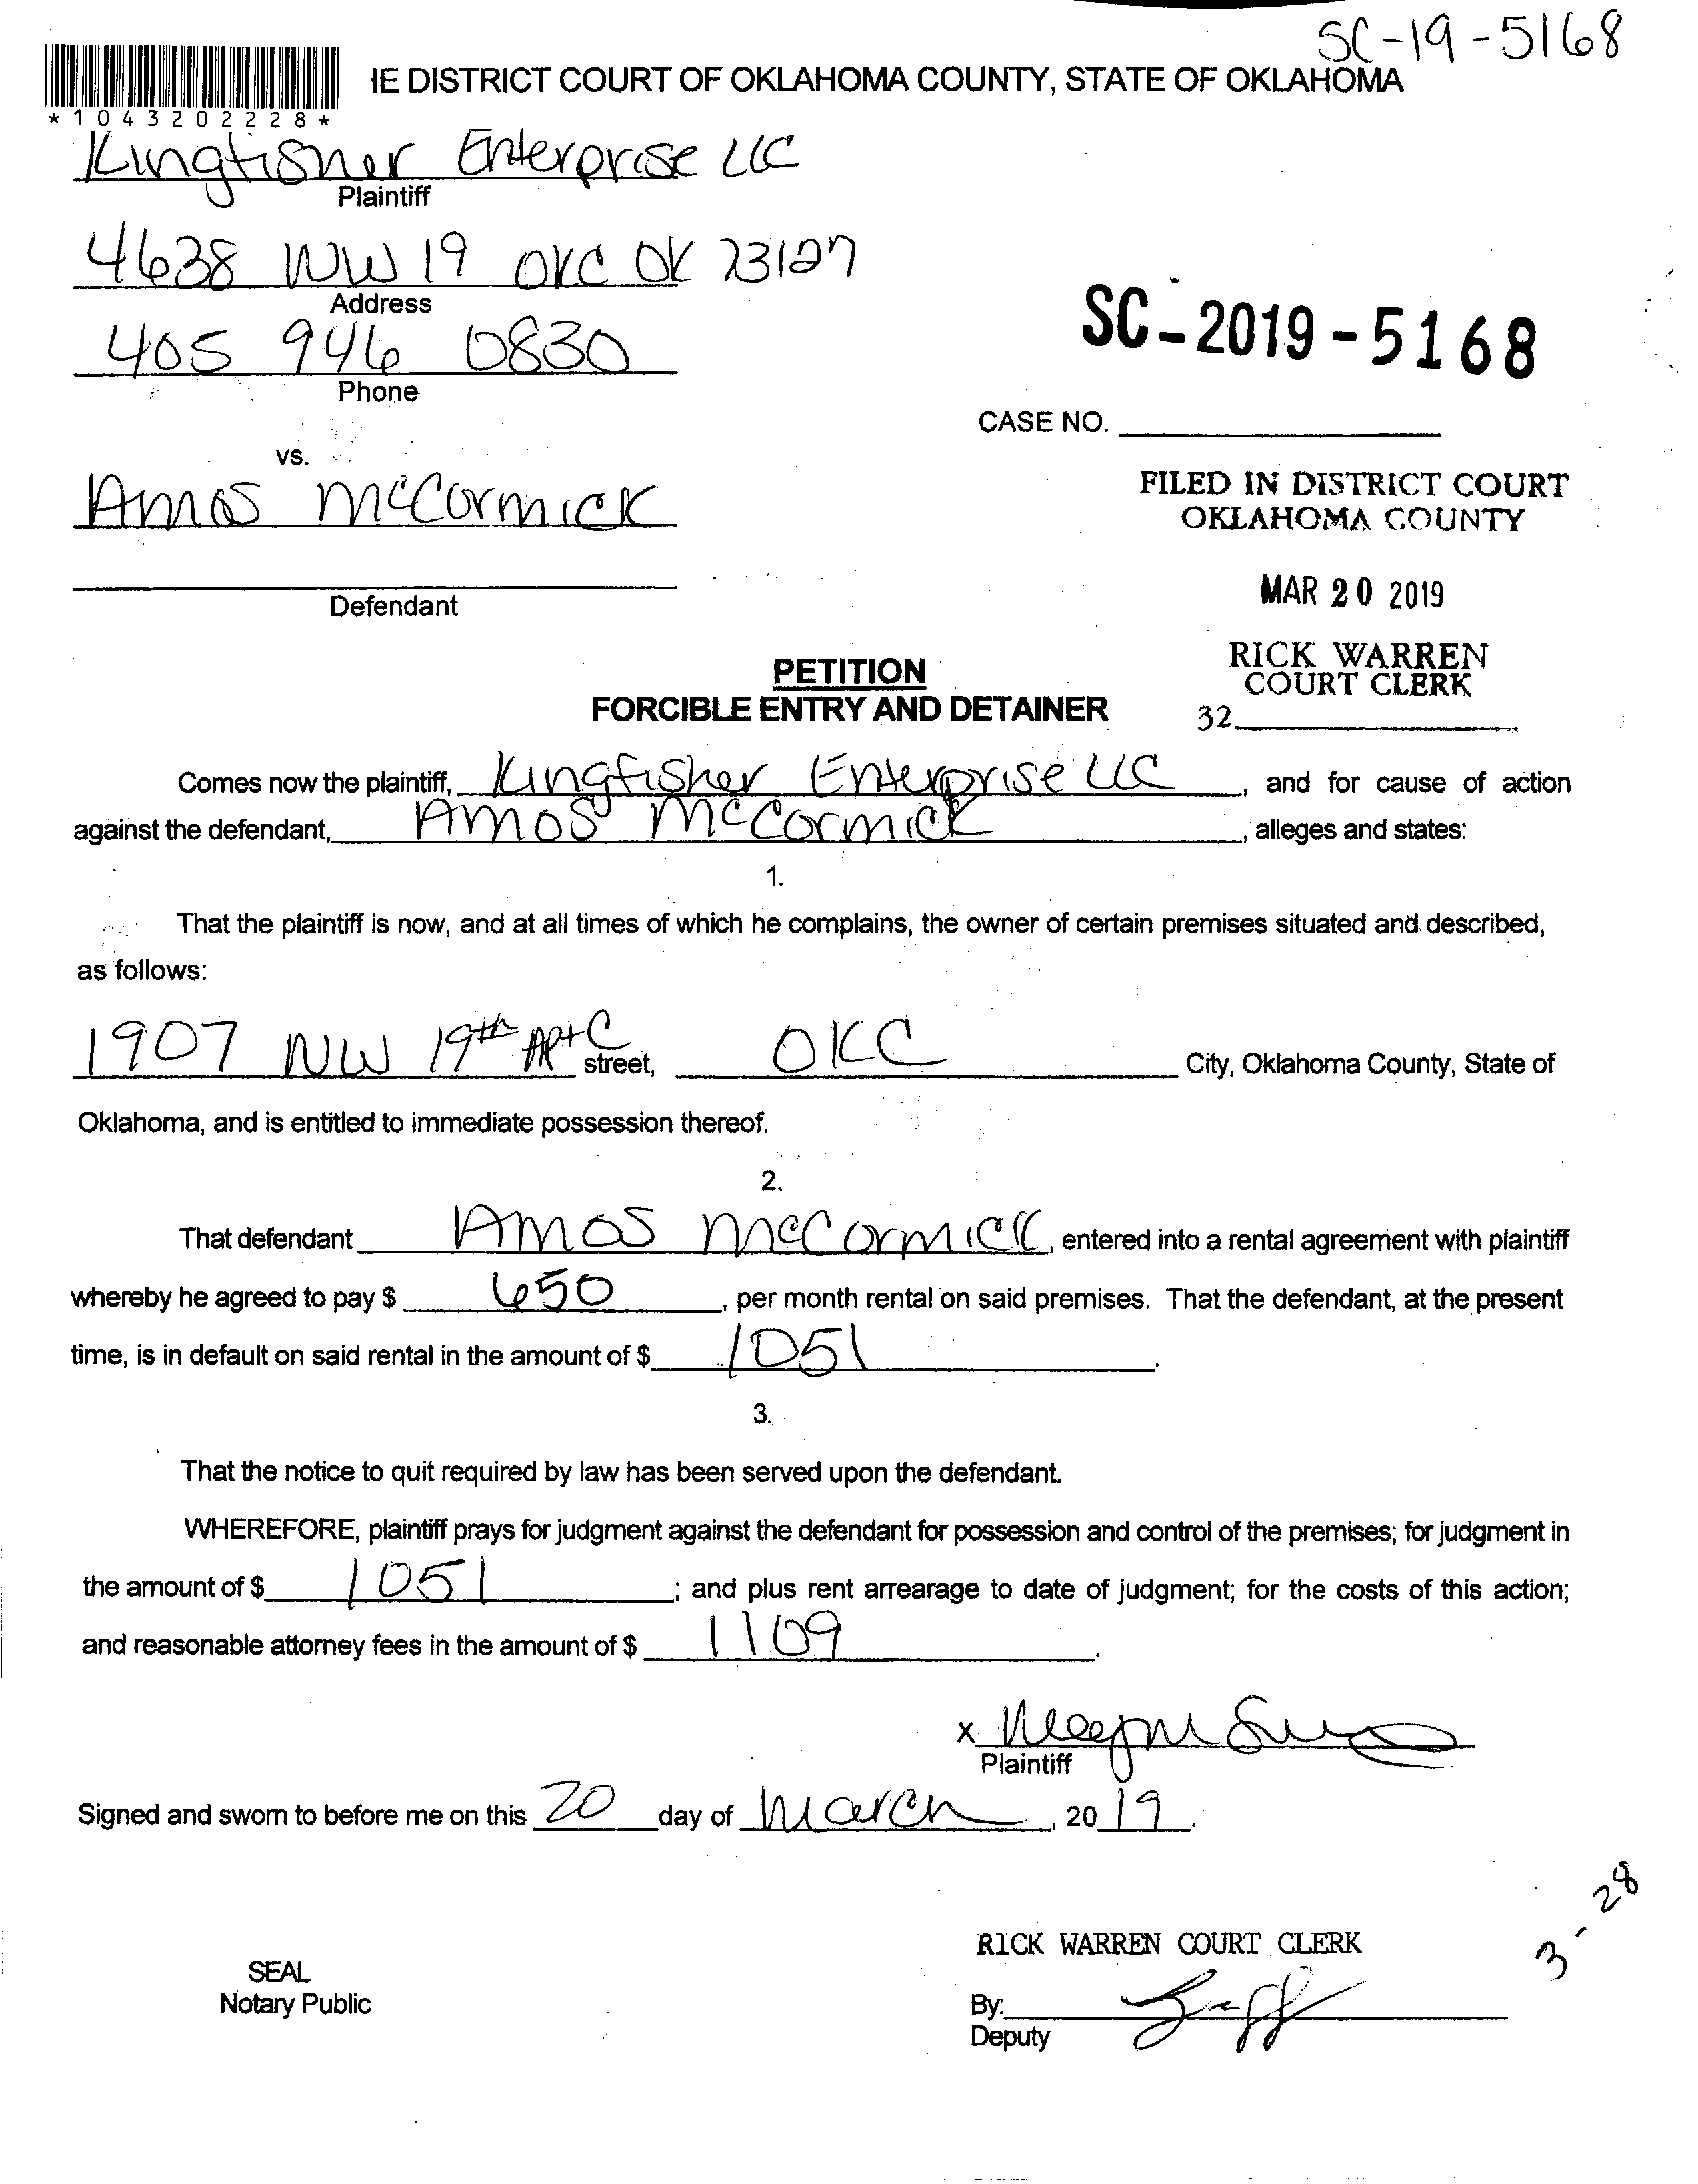 SC-19-5168
IE DISTRICT COURT OF OKLAHOMA COUNTY, STATE OF OKLAHOMA
*1043202228*
Kingfisher Enterprise LLC
Plaintiff
4638 NW 19 OKC OK 73127
Address
405 946 0830
Phone
SC-2019-5168
CASE NO.
vs.
Amos McCormick
FILED IN DISTRICT COURT
OKLAHOMA COUNTY
MAR 20 2019
Defendant
RICK WARREN
COURT CLERK
32
PETITION
FORCIBLE ENTRY AND DETAINER
Comes now the plaintiff, Kingfisher Enterprise LLC, and for cause of action
against the defendant, Amos McCormick, alleges and states:
1.
That the plaintiff is now, and at all times of which he complains, the owner of certain premises situated and described,
as follows:
1907 NW 19th Apt C street, OKC City, Oklahoma County, State of
Oklahoma, and is entitled to immediate possession thereof.
2.
That defendant Amos McCormick, entered into a rental agreement with plaintiff
whereby he agreed to pay $ 650, per month rental on said premises. That the defendant, at the present
time, is in default on said rental in the amount of $ 1051.
3.
That the notice to quit required by law has been served upon the defendant.
WHEREFORE, plaintiff prays for judgment against the defendant for possession and control of the premises; for judgment in
the amount of $ 1051; and plus rent arrearage to date of judgment; for the costs of this action;
and reasonable attorney fees in the amount of $ 1109.
x
Plaintiff
Signed and sworn to before me on this 20 day of March, 2019.
3-28
RICK WARREN COURT CLERK
SEAL
Notary Public
By:
Deputy